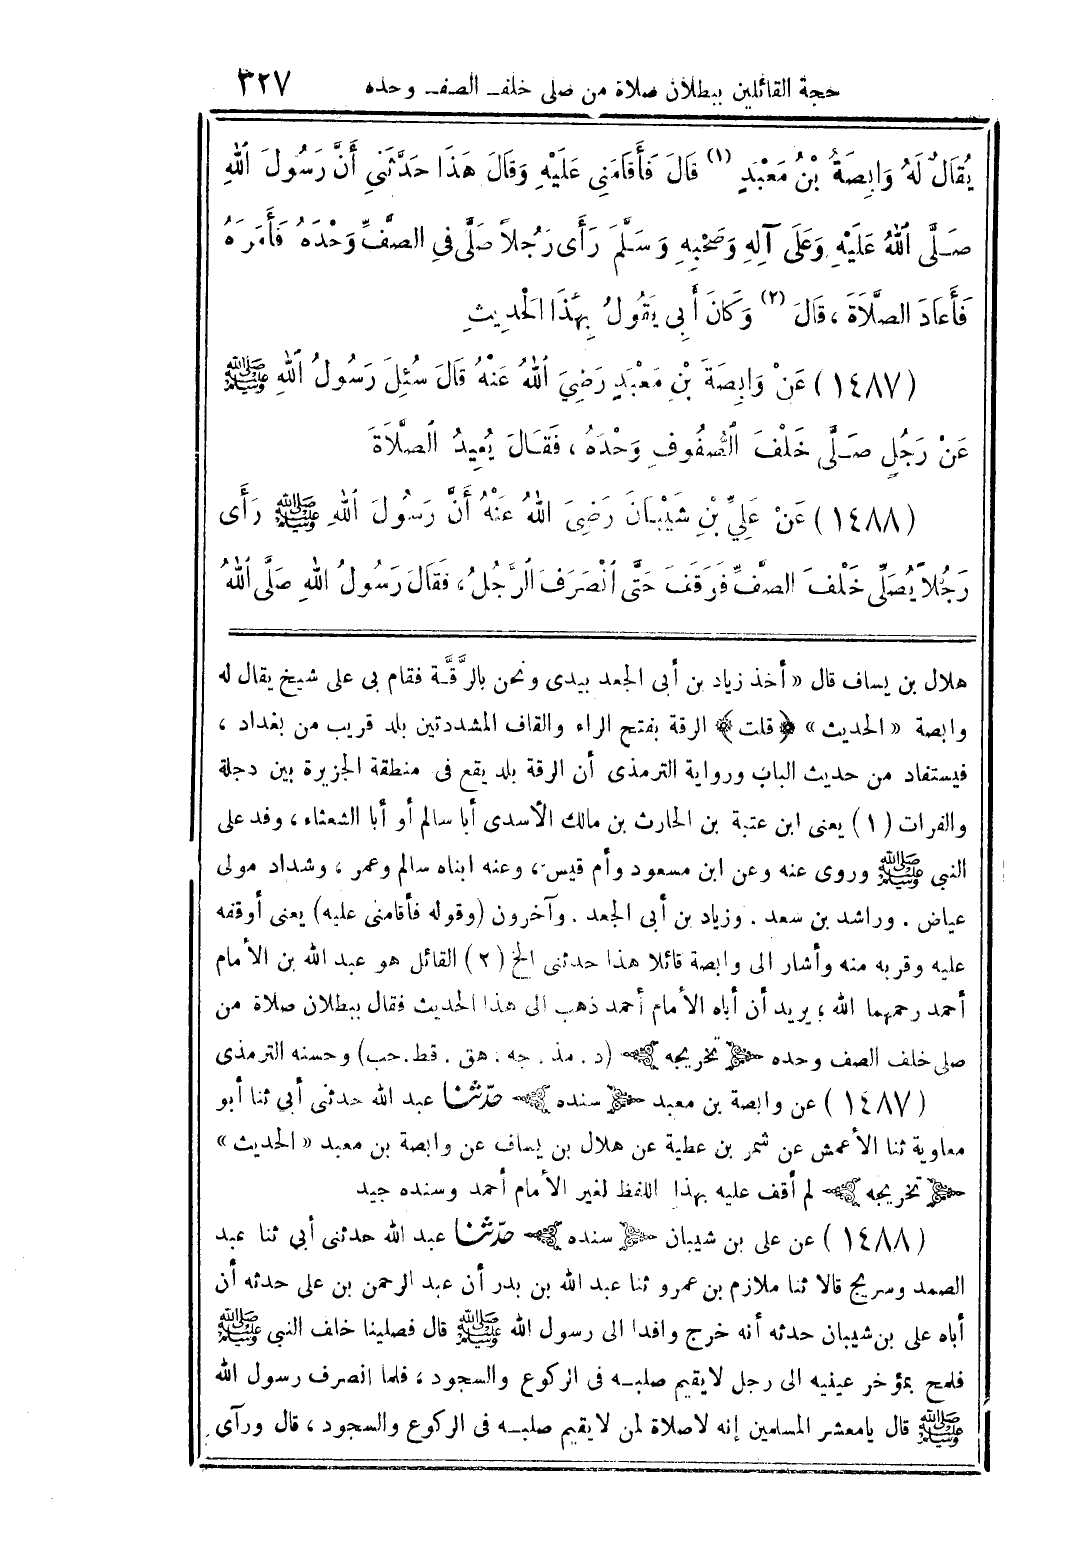 حجة القائلين ببطلان صلاة من صلى خلف الصف وحده ٣٢٧
يُقَالُ لَهُ وَابِصَةُ بْنُ مَعْبَدٍ (١) قَالَ فَأَقَامَنِي عَلَيْهِ وَقَالَ هَذَا حَدَّثَنِي أَنَّ رَسُولَ اللهِ
صَلَّى اللهُ عَلَيْهِ وَعَلَى آلِهِ وَصَحْبِهِ وَسَلَّمَ رَأَى رَجُلاً صَلَّى فِي الصَّفِّ وَحْدَهُ فَأَمَرَهُ
فَأَعَادَ الصَّلَاةَ ، قَالَ (٢) وَكَانَ أَبِى يَقُولُ بِهَذَا الْحَدِيثِ
(١٤٨٧) عَنْ وَابِصَةَ بْنِ مَعْبَدٍ رَضِيَ اللهُ عَنْهُ قَالَ سُئِلَ رَسُولُ اللهِ ﷺ
عَنْ رَجُلٍ صَلَّى خَلْفَ الصُّفُوفِ وَحْدَهُ ، فَقَالَ يُعِيدُ الصَّلَاةَ
(١٤٨٨) عَنْ عَلِيِّ بْنِ شَيْبَانَ رَضِىَ اللهُ عَنْهُ أَنَّ رَسُولَ اللهِ ﷺ رَأَى
رَجُلاً يُصَلِّى خَلْفَ الصَّفِّ فَوَقَفَ حَتَّى انْصَرَفَ الرَّجُلُ ، فَقَالَ رَسُولُ اللهِ صَلَّى اللهُ
هلال بن يساف قال « أخذ زياد بن أبى الجعد بيدى ونحن بالرَّقَّة فقام بى على شيخ يقال له
وابصة « الحديث » ﴿قلت﴾ الرقة بفتح الراء والقاف المشددتين بلد قريب من بغداد ،
فيستفاد من حديث الباب ورواية الترمذى أن الرقة بلد يقع فى منطقة الجزيرة بين دجلة
والفرات (١) يعنى ابن عتبة بن الحارث بن مالك الأسدى أبا سالم أو أبا الشعثاء ، وفد على
النبي ﷺ وروى عنه وعن ابن مسعود وأم قيس ، وعنه ابناه سالم وعمر ، وشداد مولى
عياض . وراشد بن سعد . وزياد بن أبى الجعد . وآخرون (وقوله فأقامنى عليه) يعنى أوقفه
عليه وقربه منه وأشار الى وابصة قائلا هذا حدثنى الخ (٢) القائل هو عبد الله بن الأمام
أحمد رحمهما الله ، يريد أن أباه الأمام أحمد ذهب الى هذا الحديث فقال ببطلان صلاة من
صلى خلف الصف وحده ﴿تخريجه﴾ (د . مذ . جه . هق . قط . حب) وحسنه الترمذى
(١٤٨٧) عن وابصة بن معبد ﴿سنده﴾ حدّثنا عبد الله حدثنى أبي ثنا أبو
معاوية ثنا الأعمش عن شمر بن عطية عن هلال بن يساف عن وابصة بن معبد « الحديث »
﴿تخريجه﴾ لم أقف عليه بهذا اللفظ لغير الأمام أحمد وسنده جيد
(١٤٨٨) عن على بن شيبان ﴿سنده﴾ حدّثنا عبد الله حدثنى أبي ثنا عبد
الصمد وسريج قالا ثنا ملازم بن عمرو ثنا عبد الله بن بدر أن عبد الرحمن بن على حدثه أن
أباه على بن شيبان حدثه أنه خرج وافدا الى رسول الله ﷺ قال فصلينا خلف النبي ﷺ
فلمح بمؤخر عينيه الى رجل لا يقيم صلبه فى الركوع والسجود ، فلما انصرف رسول الله
ﷺ قال يامعشر المسلمين إنه لاصلاة لمن لا يقيم صلبه فى الركوع والسجود ، قال ورآى